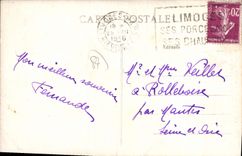 CARTE POSTALE
LIMOGES
SES PORCELAINES
1936
20
Mon meilleur souvenir
Fernande
Mr et Mme Veillet
à Rolleboise
par Mantes
Seine et Oise